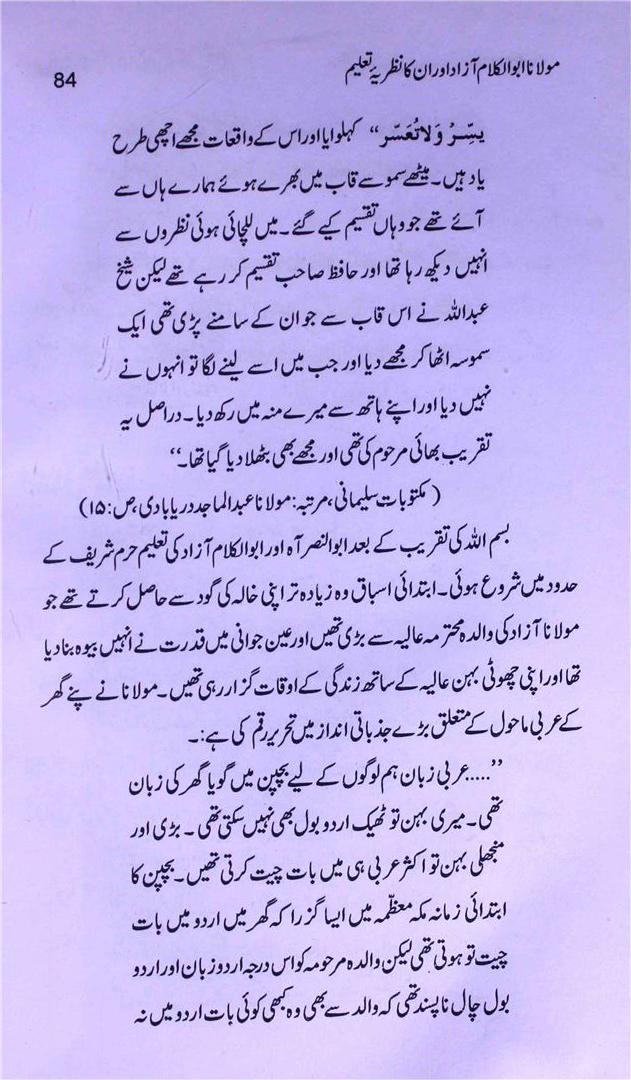 مولانا ابوالکلام آزاد اور ان کا نظریۂ تعلیم
84
یسِّرْ وَلَا تُعَسِّر‘‘ کہلوایا اور اس کے واقعات مجھے اچھی طرح
یاد ہیں۔ میٹھے سموسے قاب میں بھرے ہوئے ہمارے ہاں سے
آئے تھے جو وہاں تقسیم کیے گئے۔ میں للچائی ہوئی نظروں سے
انہیں دیکھ رہا تھا اور حافظ صاحب تقسیم کر رہے تھے لیکن شیخ
عبداللہ نے اس قاب سے جو ان کے سامنے پڑی تھی ایک
سموسہ اٹھا کر مجھے دیا اور جب میں اسے لینے لگا تو انہوں نے
نہیں دیا اور اپنے ہاتھ سے میرے منہ میں رکھ دیا۔ دراصل یہ
تقریب بھائی مرحوم کی تھی اور مجھے بھی بٹھلا دیا گیا تھا۔‘‘
(مکتوبات سلیمانی، مرتبہ: مولانا عبدالماجد دریابادی، ص: ۱۵)
بسم اللہ کی تقریب کے بعد ابوالنصر آہ اور ابوالکلام آزاد کی تعلیم حرم شریف کے
حدود میں شروع ہوئی۔ ابتدائی اسباق وہ زیادہ تر اپنی خالہ کی گود سے حاصل کرتے تھے جو
مولانا آزاد کی والدہ محترمہ عالیہ سے بڑی تھیں اور عین جوانی میں قدرت نے انہیں بیوہ بنا دیا
تھا اور اپنی چھوٹی بہن عالیہ کے ساتھ زندگی کے اوقات گزار رہی تھیں۔ مولانا نے پنے گھر
کے عربی ماحول کے متعلق بڑے جذباتی انداز میں تحریر رقم کی ہے:۔
’’.....عربی زبان ہم لوگوں کے لیے بچپن میں گویا گھر کی زبان
تھی۔ میری بہن تو ٹھیک اردو بول بھی نہیں سکتی تھی۔ بڑی اور
منجھلی بہن تو اکثر عربی ہی میں بات چیت کرتی تھیں۔ بچپن کا
ابتدائی زمانہ مکہ معظّمہ میں ایسا گزرا کہ گھر میں اردو میں بات
چیت تو ہوتی تھی لیکن والدہ مرحومہ کو اس درجہ اردو زبان اور اردو
بول چال ناپسند تھی کہ والد سے بھی وہ کبھی کوئی بات اردو میں نہ